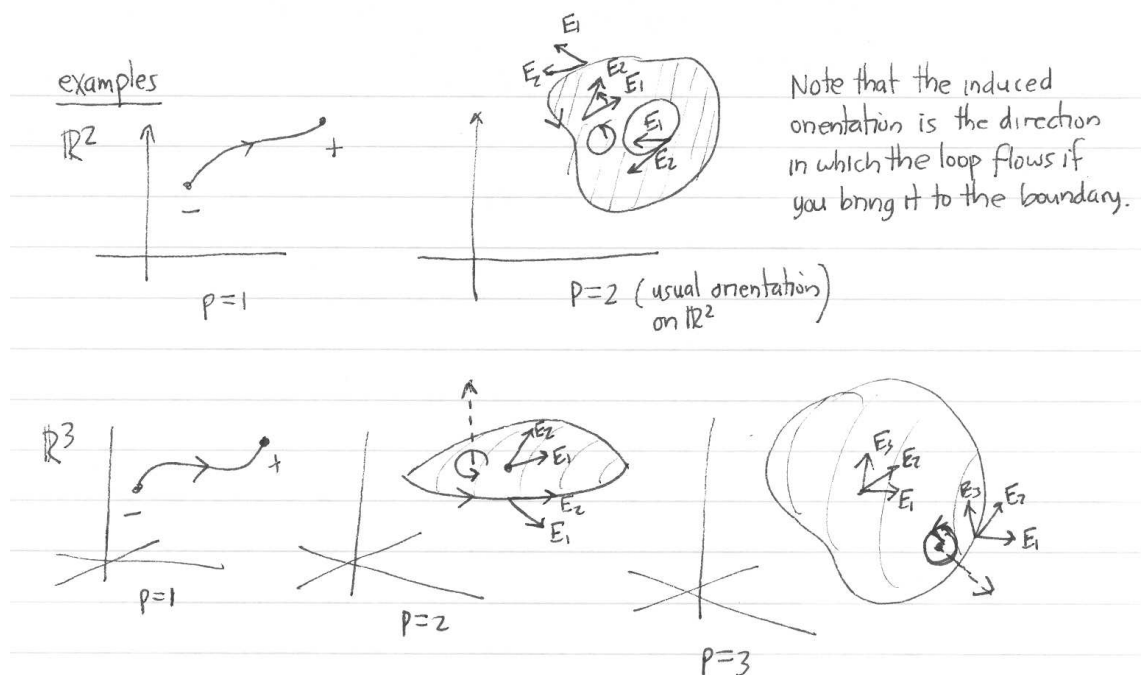 examples
ℝ²
−
+
p=1
E₁
E₂
E₂
E₁
E₁
E₂
p=2 (usual orientation)
on ℝ²
Note that the induced
orientation is the direction
in which the loop flows if
you bring it to the boundary.
ℝ³
−
+
p=1
E₂
E₁
E₂
E₁
p=2
E₃
E₂
E₁
E₃
E₂
E₁
p=3